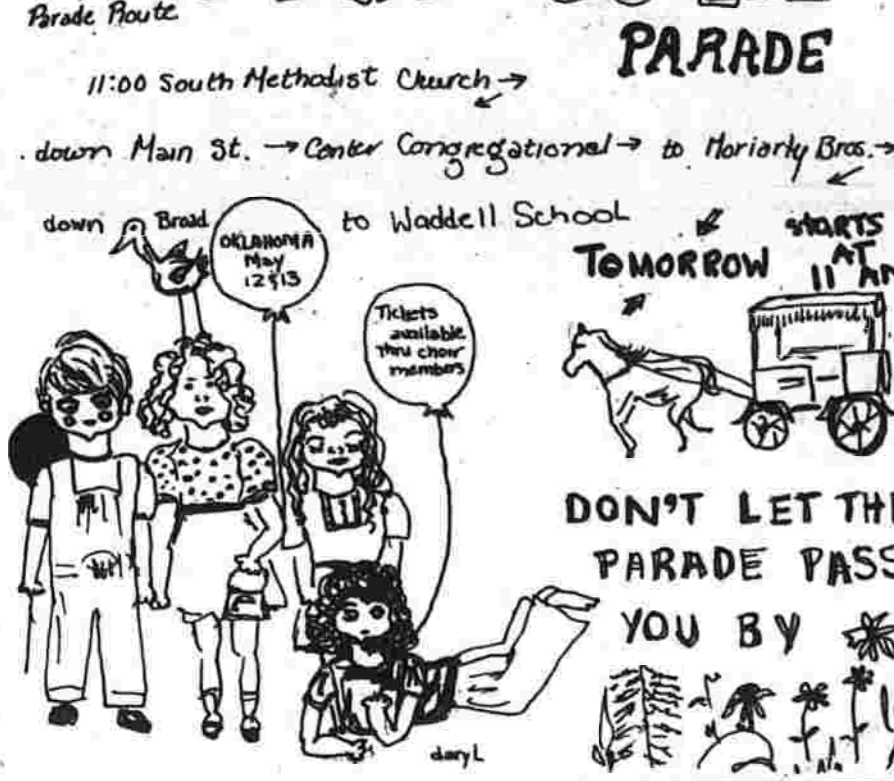 Parade Route
PARADE
11:00 South Methodist Church →
down Main St. → Center Congregational → to Moriarty Bros. →
down Broad to Waddell School
OKLAHOMA
May
12 & 13
Tickets
available
thru choir
members
TOMORROW
STARTS
AT
11 AM
DON'T LET TH
PARADE PASS
YOU BY
daryl